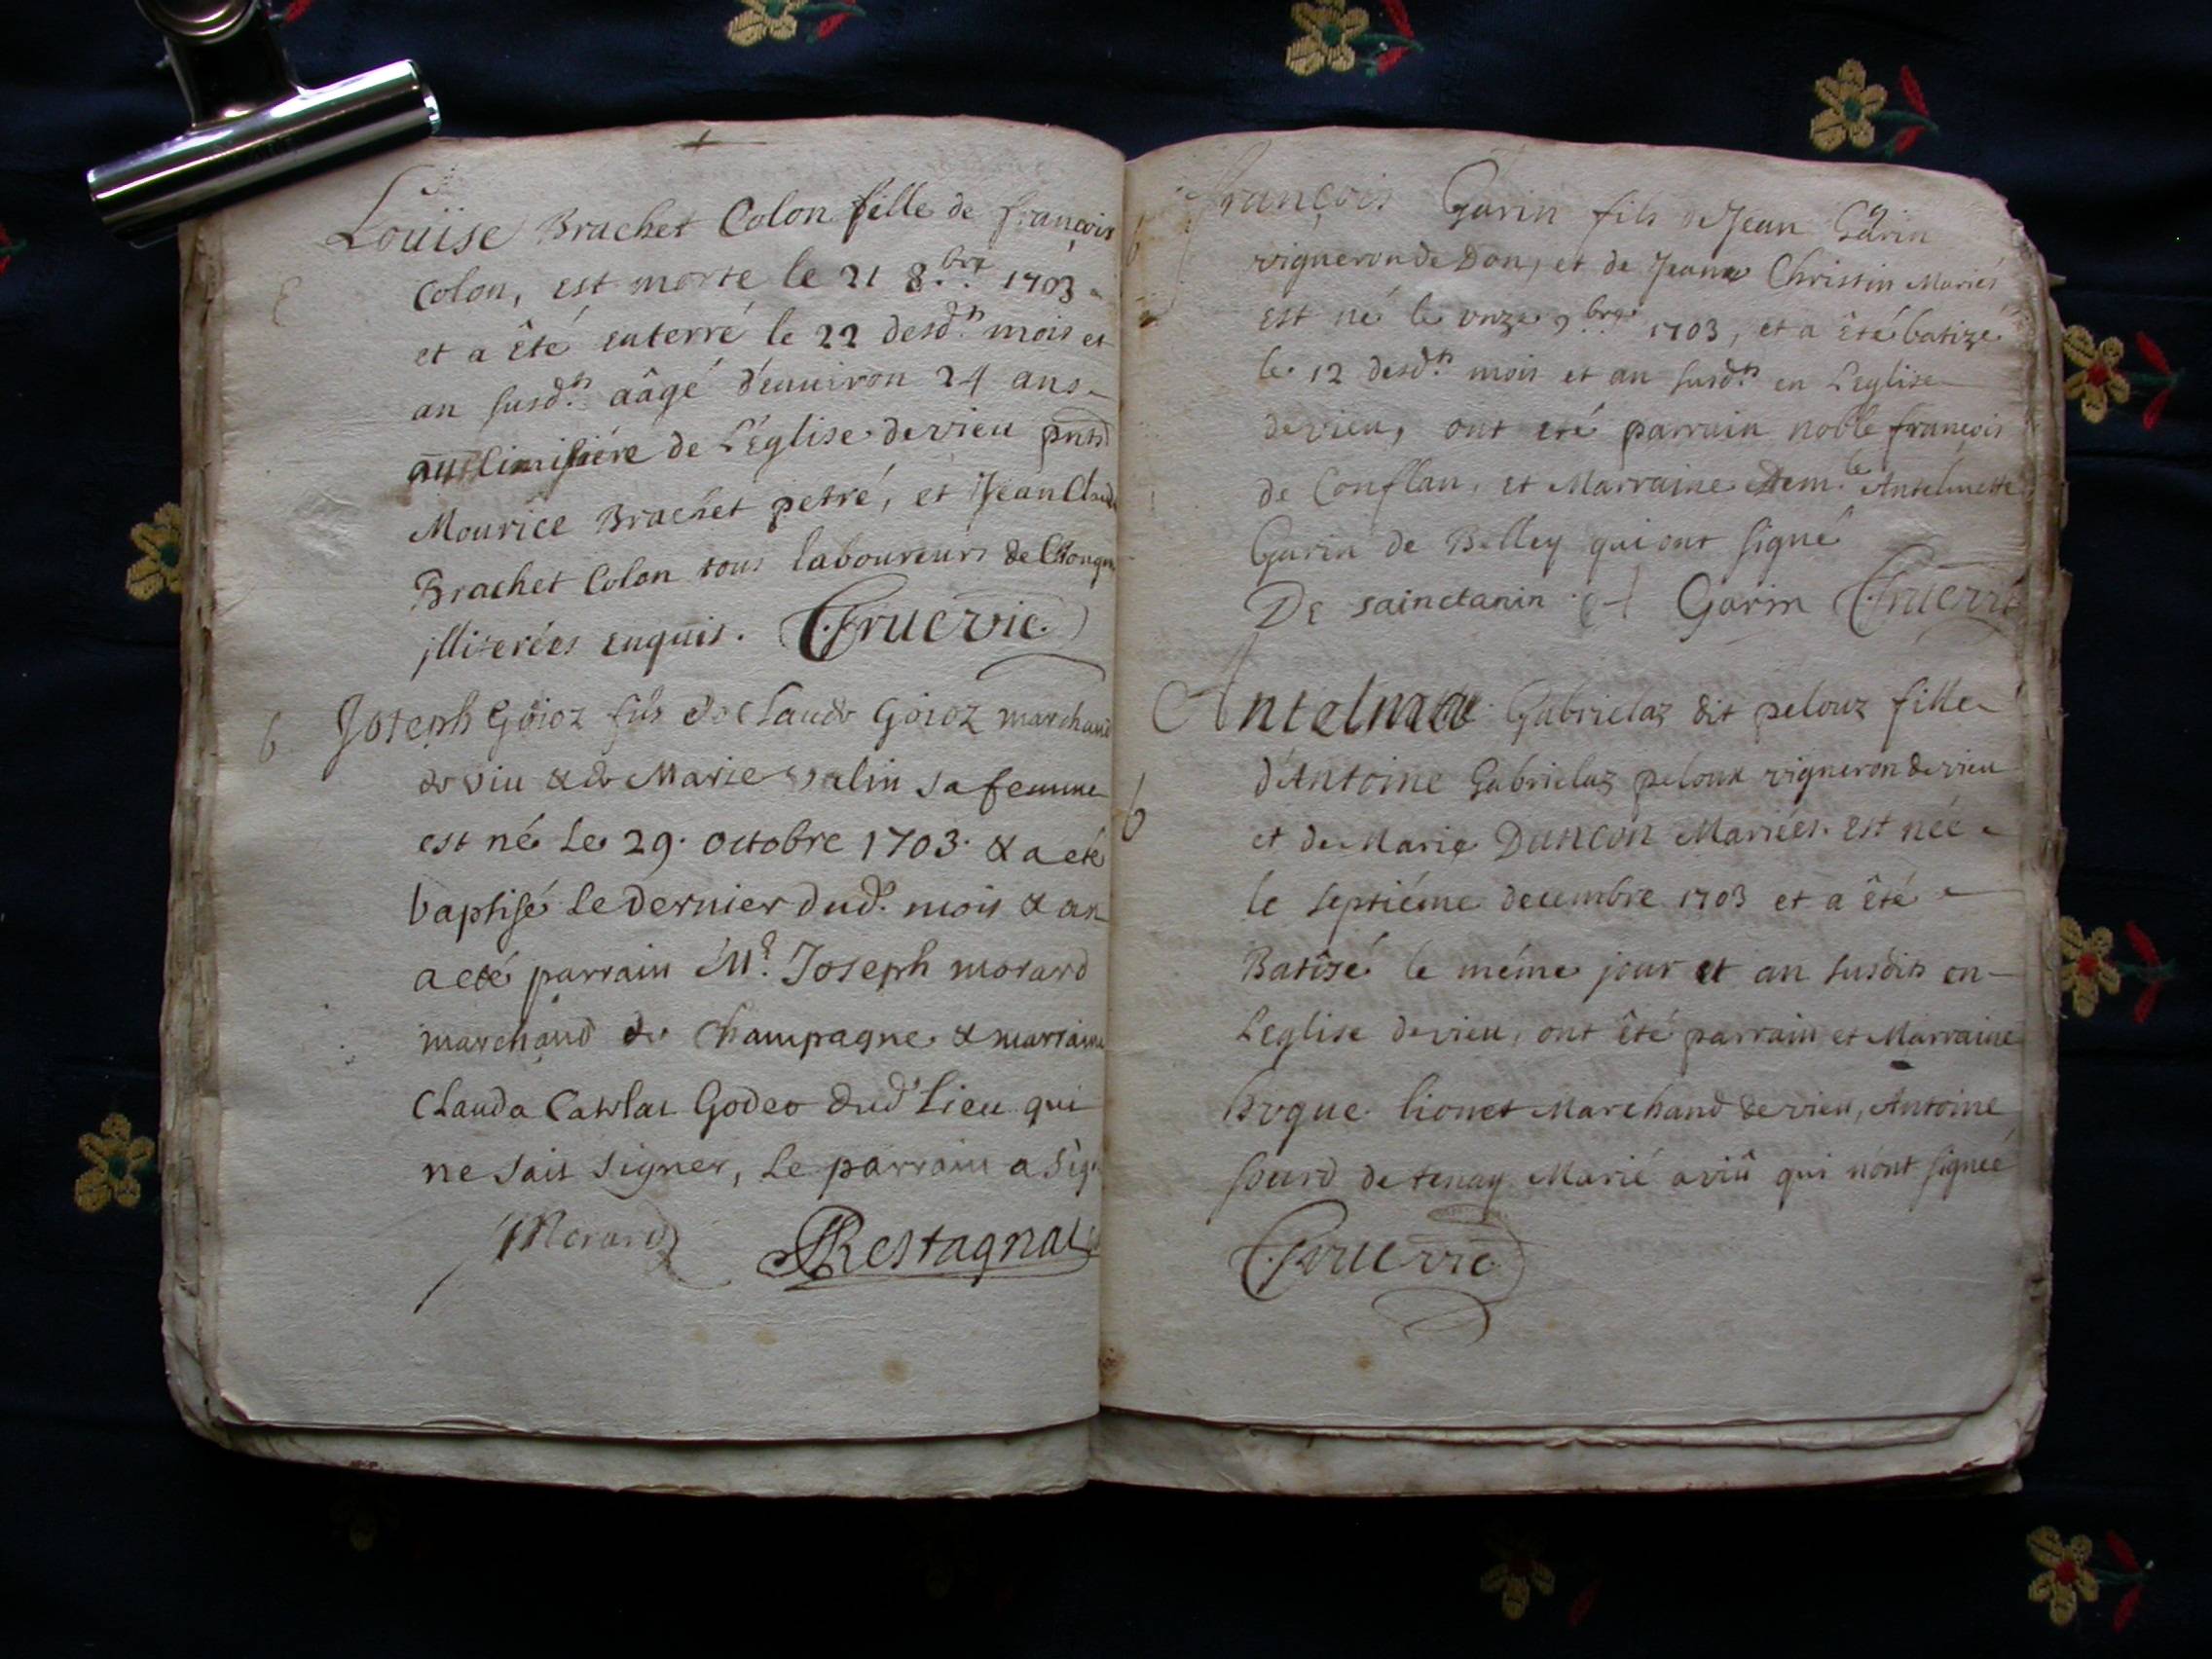 Loüise Brachet Colon fille de françois
Colon, est morte le 21 8.bre 1703
et a êté enterré le 22 desd.ts mois et
an susd.ts aâgé d'enuiron 24 ans
au Cimistiére de L'église de vieu pnts
Mourice Brachet petré, et Jean Claude
Brachet Colon tous laboureurs de
jlliterées enquis. Truervie
6 Joseph Goioz fils de Claude Goioz marchand
de viu & de Marie valin sa femme
est né Le 29. octobre 1703. & a eté
baptisé Le dernier dud.t mois & an
a eté parrain M.r Joseph morard
marchand de Champagne & marraine
Clauda Godeo dud.t Lieu qui
ne sait signer, Le parrain a sig.
Morard Restagnat
françois Garin fils de Jean Garin
vigneron de Don, et de Jeanne Christin Mariés
est né le vnze 9.bre 1703, et a êté batizé
le 12 desd.ts mois et an susd.ts en L'eglise
de vieu, ont eté parrain noble françois
de Conflan, et Marraine Dem.le Antelmette
Garin de Belley qui ont signé
De sainctanin Garin Truervie
Antelma Gabrielaz dit pelouz fille
d'Antoine Gabrielaz peloux vigneron de vieu
6 et de Marie Duncon Mariées. est née
le septiéme decembre 1703 et a êté
Batîsé le méme jour et an susdits en
L'eglise de vieu, ont êté parrain et Marraine
hugue lionet Marchand de vieu, Antoine
de tenay Marié a viû qui n'ont signeé
Truervie